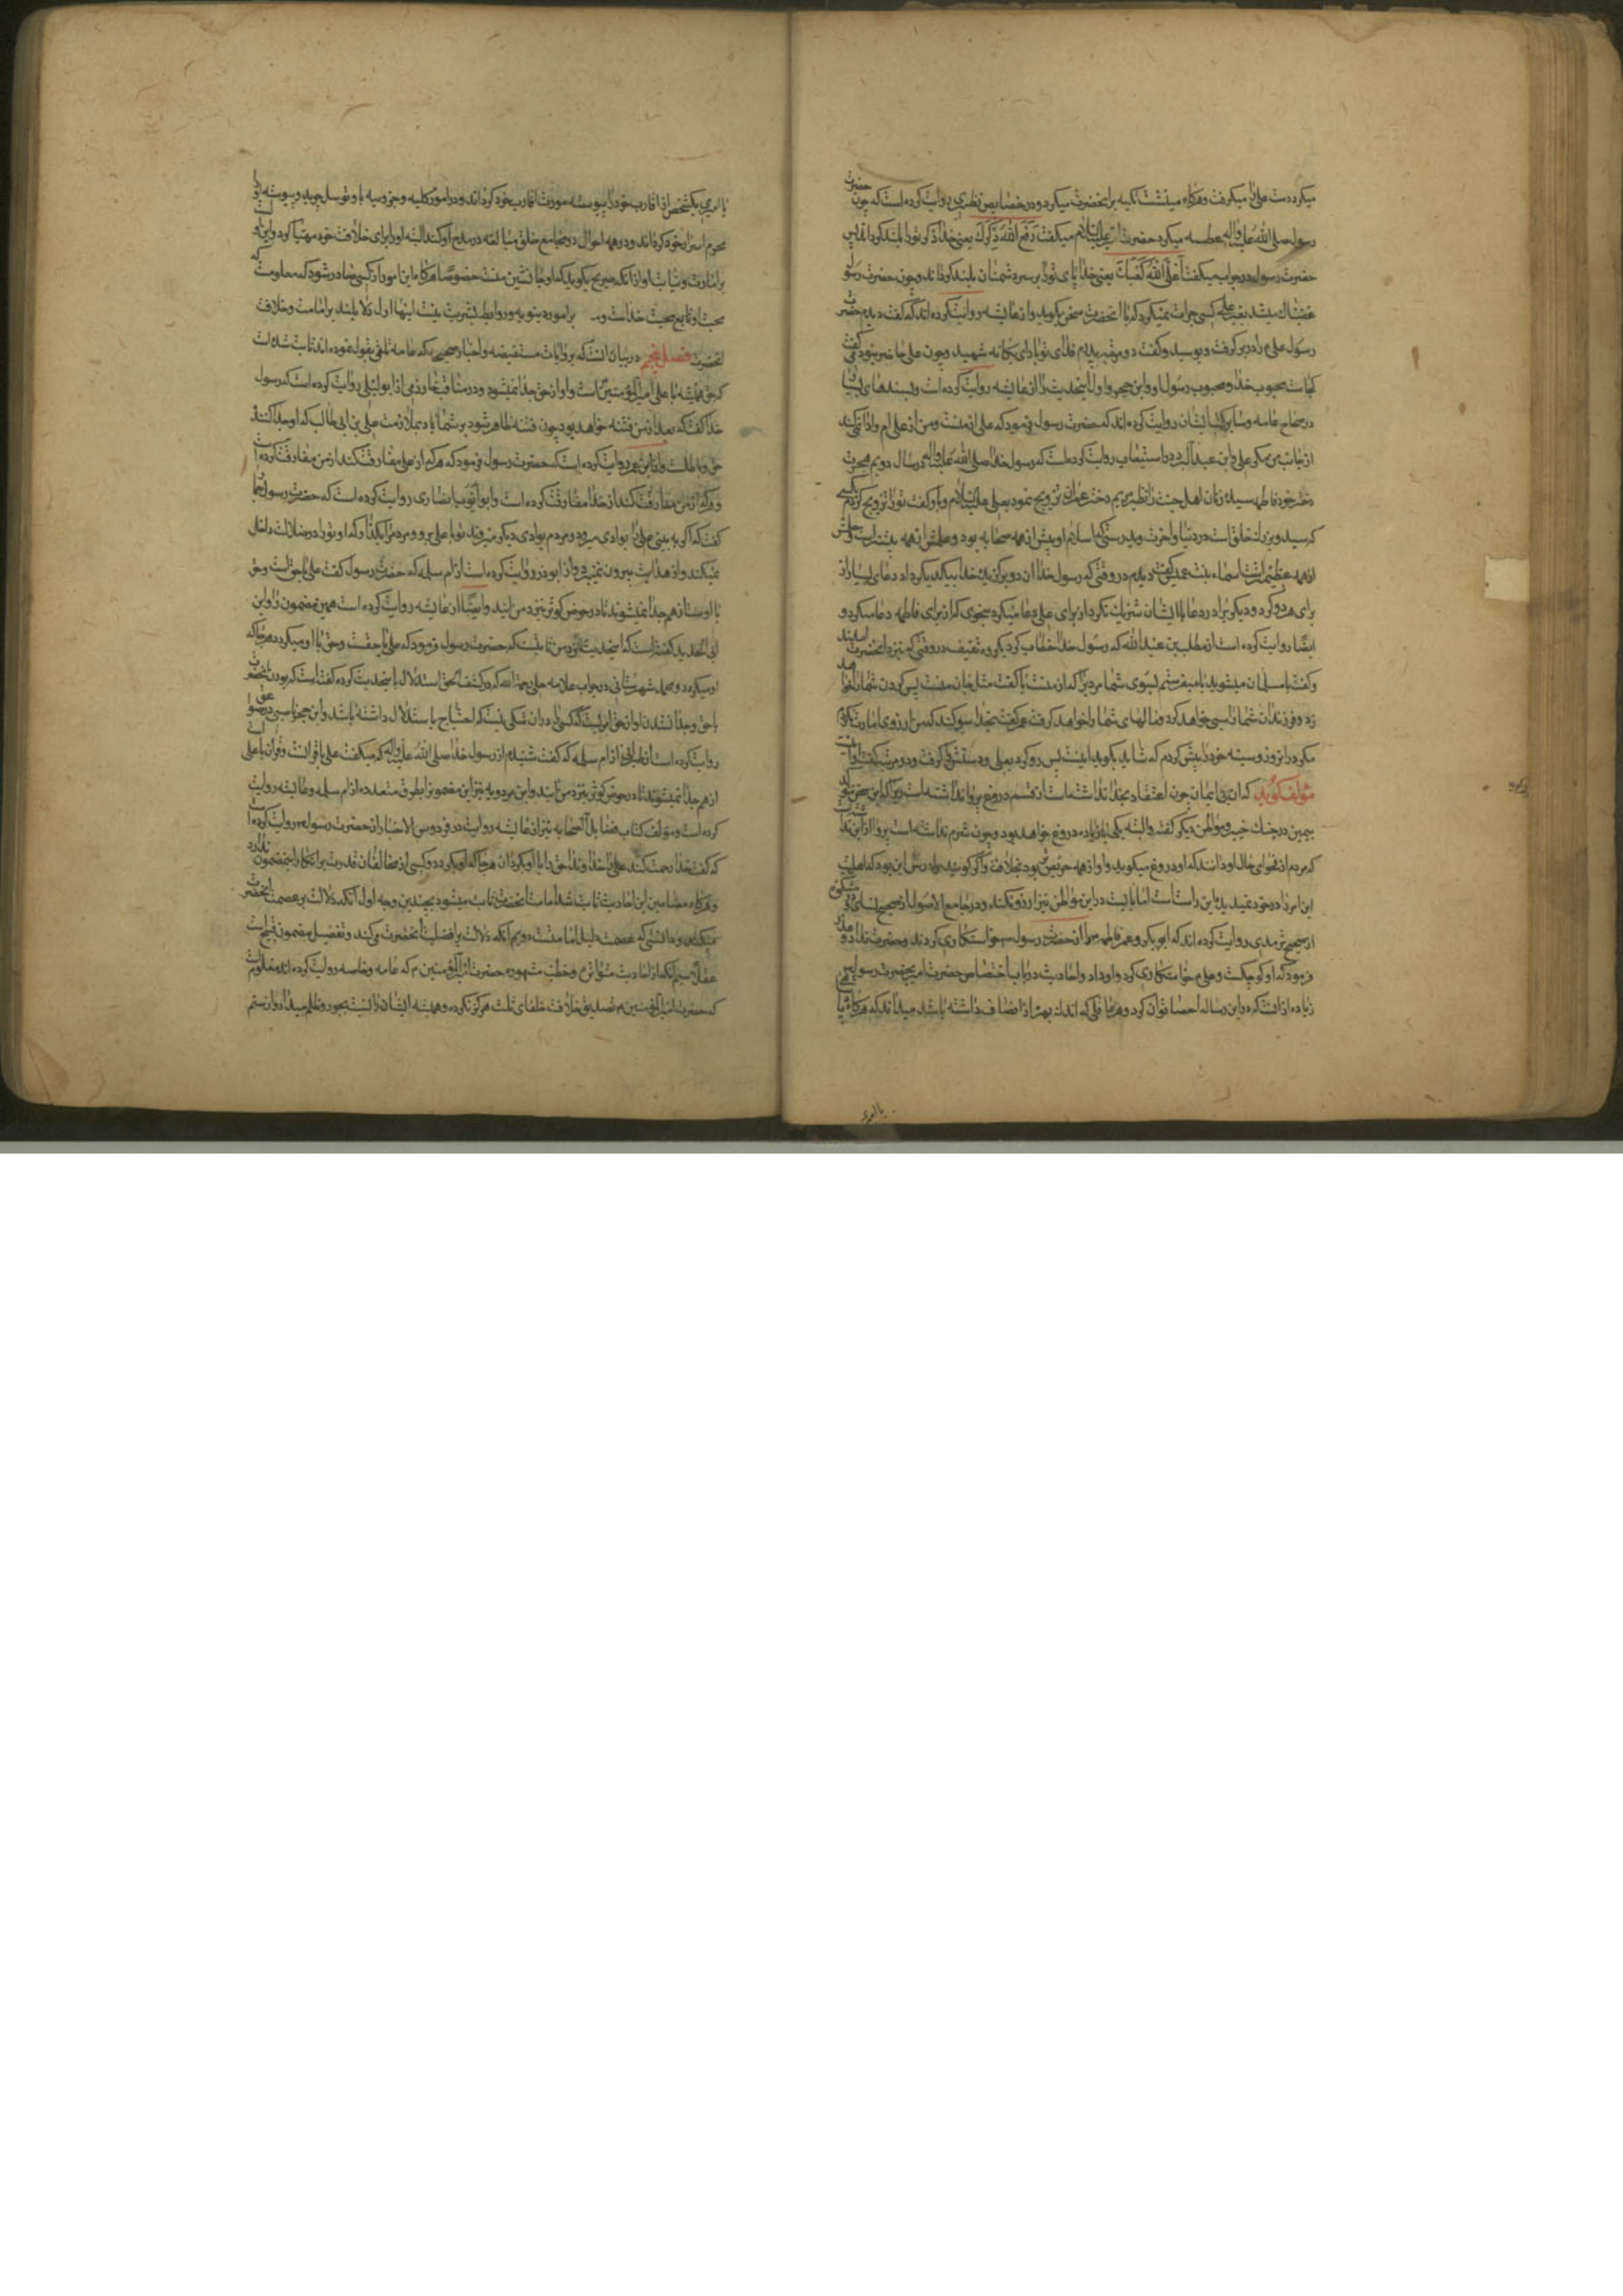 میکرد دست علی را میکرفت و هرکاه مینشست تکیه بر انحضرت میکرد و در خصایص نطنزی روایت کرده است که چون حضرت
رسول صلی الله علیه واله عطسه میکرد حضرت امیر علیه السلام میکفت رفع الله ذکرک یعنی خدا ذکر تو را بلند کرداند پس
حضرت رسول در جواب میکفت اعلی الله کعبک یعنی خدا پای تو را بر سر دشمنان بلند کرداند و چون حضرت رسول
غضبناک میشد بغیر علی کسی جرات نمیکرد که با انحضرت سخن بکوید و از عایشه روایت کرده اند که کفت دیدم حضرت
رسول علی را در بر کرفت و بوسید و کفت دو مرتبه پدرم فدای تو باد ای یکانه شهید و چون علی حاضر نبود می کفت
کجاست محبوب خدا و محبوب رسول او و ابن حجر اول اینحدیث را از عایشه روایت کرده است و بسندهای بسیار
در صحاح عامه و سایر کتب ایشان روایت کرده اند که حضرت رسول فرمود که علی از منست و من از علی ام و ادا نمیکند
از جانب من مکر علی و ابن عبد البر در استیعاب روایت کرده است که رسول خدا صلی الله علیه واله در سال دویم هجرت
دختر خود فاطمه سیده زنان اهل جنت را نظیر مریم دختر عمران تزویج نمود بعلی علیه السلام و باو کفت تو را تزویج کردم بکسی
که سید و بزرک خلق است در دنیا و اخرت و بدرستی که اسلام او پیش از همه صحابه بود و علمش از همه بیشتر است و حلمش
از همه عظیم تر است اسماء بنت عمیس کفت دیدم در وقتی که رسول خدا ان دو برکزیده خدا بیکدیکر داد دعای بسیار از
برای هر دو کرد و دیکری را در دعا با ایشان شریک نکرد و از برای علی دعا میکرد بنحوی که از برای فاطمه دعا میکرد و
ایضا روایت کرده است از مطلب بن عبد الله که رسول خدا خطاب کرد بکروه ثقیف در وقتی که بنزد انحضرت امدند
و کفت یا مسلمان میشوید یا میفرستم بسوی شما مردی را که از منست یا کفت مثل جان منست پس کردن شما را خواهد
زد و فرزندان شما را سبی خواهد کرد و مالهای شما را خواهد کرفت عمر کفت بخدا سوکند که من ارزوی امارت نکردم
مکر در انروز و سینه خود را پیش کردم که شاید بکوید اینست پس رو کرد بعلی و دستش را کرفت و دو مرتبه کفت اینست
مؤلف کوید که ان بی ایمان چون اعتقاد بخدا نداشته است از قسم دروغ پروا نداشته است
بیمین در جنک خیبر و مواطن دیکر کفته و البته یکی یا زیاده دروغ خواهد بود و چون شرم نداشته است پروا از این نداشت
که مردم از فحوای حال او دانند که او دروغ میکوید و او از همه حریص تر بود بخلافت و اکر کوید مرادش این بود که اهلیت
این امر را در خود نمیدید این راست است اما بایست در این مواطن نیز ارزو نکند و در جامع الاصول از صحیح نسائی و مشکوة
از صحیح ترمدی روایت کرده اند که ابوبکر و عمر فاطمه را از حضرت رسول خواستکاری کردند و حضرت عذر
فرمود که او کوچکست و علی خواستکاری کرد و او داد و احادیث در باب اختصاص حضرت امیر بحضرت رسول
زیاده از انست که در این رساله احصا توان کرد و هر عاقلی که اندک بهره از انصاف داشته باشد میداند که هرکاه
با امیری
یا امیری یکشخص از اقارب خود را پیوسته مورث اقارب خود کرداند و در امور کلیه و جزویه باو توسل جوید و پیوسته او را
محرم اسرار خود کرداند و در همه احوال در مجامع خلق مبالغه در مدیح او کند البته او را برای خلافت خود مهیا کرده و این
بر امارت و نیابت او از انکه صریح بکوید که او جانشین منست خصوصا هرکاه این امور از کسی صادر شود که
محبت او تابع محبت خداست و بر امور دنیویه و روابط بشریت نیست اینها اول دلایلند بر امامت و خلافت
انحضرت فصل پنجم در بیان انست که بروایات مستفیضه و اخبار صحیحه که عامه تلقی بقبول نموده اند ثابت شده است
که حق همیشه با علی امیر المؤمنین است و او از حق جدا نمیشود و در مناقب خوارزمی از ابولیلی روایت کرده است که رسول
خدا کفت که بعد از من فتنه خواهد بود چون فتنه ظاهر شود بر شما باد بملازمت علی بن ابی طالب که او جدا کننده
حق و باطلست و از ابن عمر روایت کرده است که حضرت رسول فرمود که هر که از علی مفارقت کند از من مفارقت کرده است
و هر که از من مفارقت کند از خدا مفارقت کرده است و ابو ایوب انصاری روایت کرده است که حضرت رسول بعمار
کفت که اکر به بینی علی را بوادی میرود و مردم بوادی دیکر میروند تو با علی برو و مردم را بکذار که او تو را در ضلالت داخل
نمیکند و از هدایت بیرون نمیبرد و از ابوذر روایت کرده است از ام سلمه که حضرت رسول کفت علی با حق است و حق
با اوست از هم جدا نمیشوند تا در حوض کوثر بنزد من ایند و ایضا از عایشه روایت کرده است همین مضمون را و ابن
ابی الحدید کفته است که اینحدیث نزد من ثابتست که حضرت رسول فرمود که علی با حقست و حق با او میکردد هرجا که
او میکردد و محمد شهرستانی در جواب علامه حلی رحمه الله که در کشف الحق استدلال باینحدیث کرده کفته است که بودن انحضرت
با حق و جدا نشدن او از حق امریست که کسی را در ان شکی نیست که احتیاج باستدلال داشته باشد و ابن حجر ناصبی در صواعق
روایت کرده است از طبرانی از ام سلمه که کفت شنیدم از رسول خدا صلی الله علیه واله که میکفت علی با قرانست و قران با علی است
از هم جدا نمیشوند تا در حوض کوثر بنزد من ایند و ابن مردویه نیز این مضمون را بطرق متعدده از ام سلمه و عایشه روایت
کرده است و مؤلف کتاب فضایل الصحابه نیز از عایشه روایت در فردوس الاخبار از حضرت رسول روایت کرده است
که کفت خدا رحمت کند علی را خداوندا حق را با او بکردان هرجا که او بکردد و کسی از مخالفان قدرت بر انکار اینمضمون ندارد
و هرکاه مضامین این احادیث ثابت باشد امامت انحضرت ثابت میشود بچندین وجه اول انکه دلالت بر عصمت انحضرت
میکند و دانستی که عصمت دلیل امامتست دویم انکه دلالت بر افضلیت انحضرت میکند و تفضیل مفضول قبیح است
عقلا سیم انکه از احادیث متواتره و خطب مشهوره حضرت امیر المؤمنین م که عامه و خاصه روایت کرده اند معلومست
که حضرت امیر المؤمنین م تصدیق خلافت خلفای ثلث هرکز نکرده و همیشه ایشان را نسبت بجور و ظلم میداد و از ستم